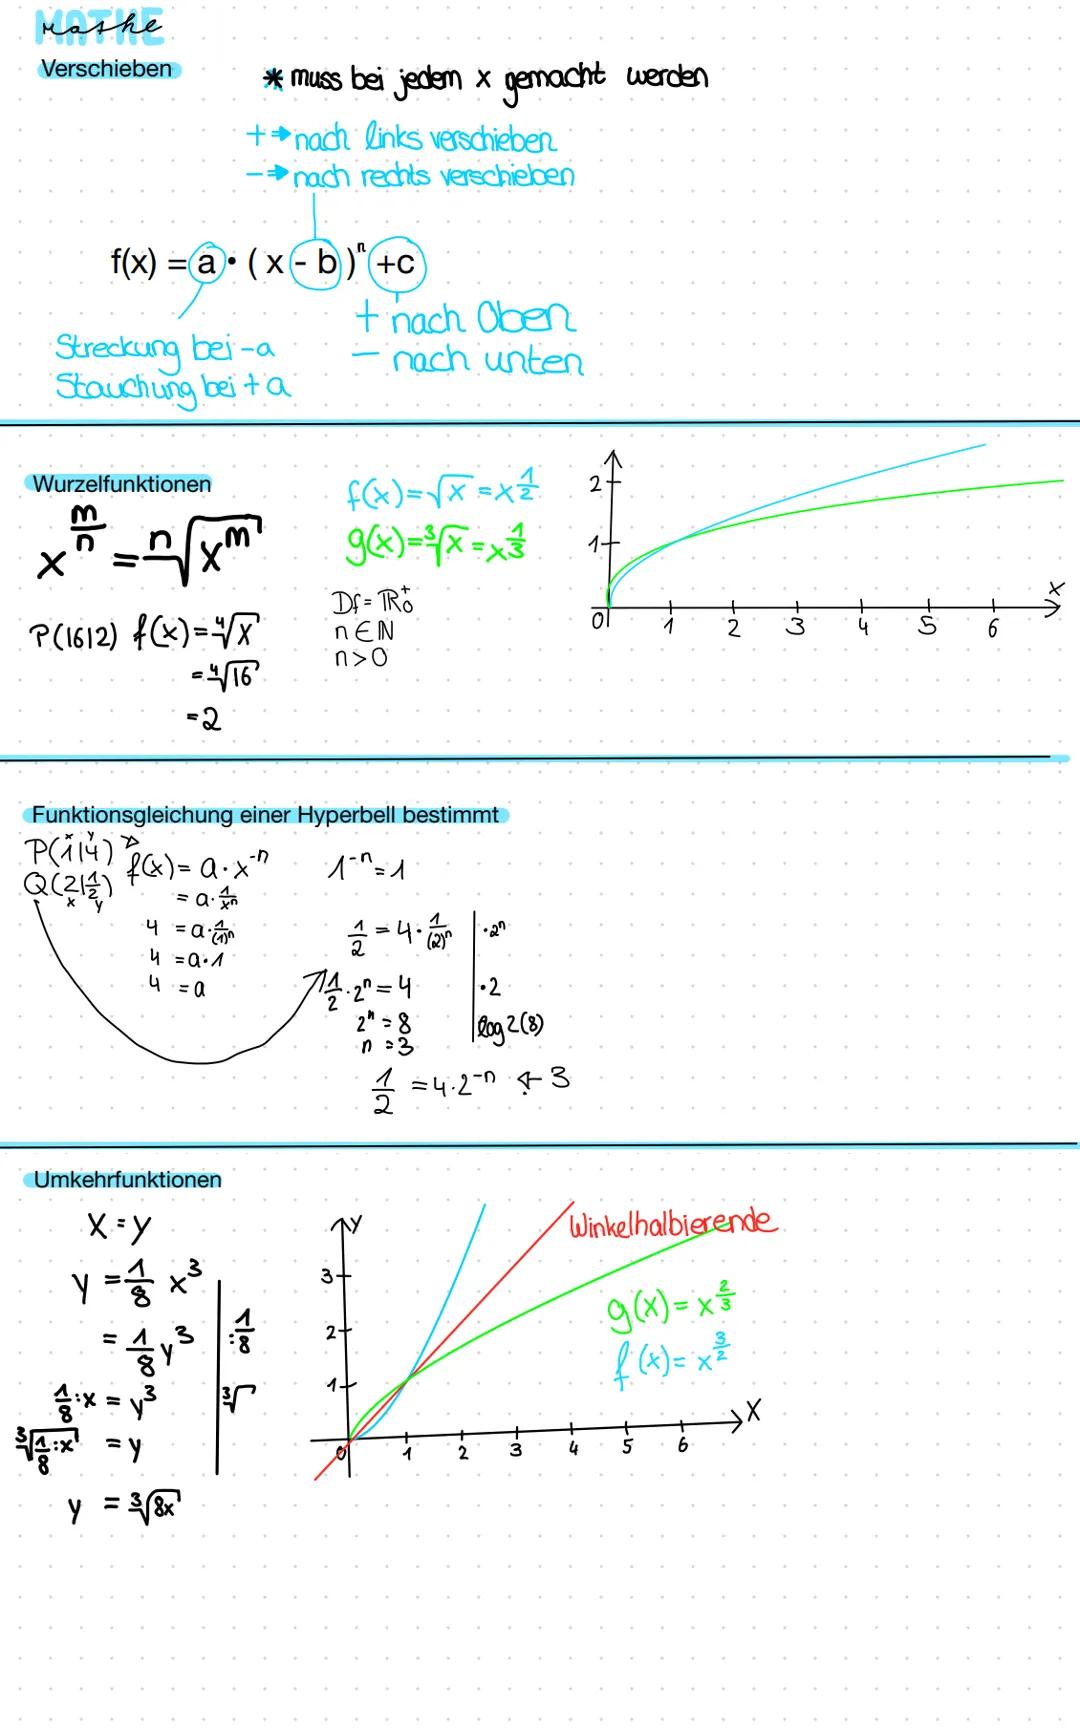 MATHE
Mathe
Verschieben
* muss bei jedem x gemacht werden
+ ⇒ nach links verschieben
- ⇒ nach rechts verschieben
f(x) = a • ( x - b )ⁿ +c
+ nach Oben
- nach unten
Streckung bei -a
Stauchung bei + a
Wurzelfunktionen
x^(m/n) = ⁿ√(x^m)
P(16|2) f(x) = ⁴√x
= ⁴√16
= 2
f(x) = √x = x^(1/2)
g(x) = ³√x = x^(1/3)
Df = ℝ₀⁺
n ∈ ℕ
n > 0
2
1
0 1 2 3 4 5 6
x
Funktionsgleichung einer Hyperbell bestimmt
x y
P(1|4)
Q(2|1/2)
x y
f(x) = a · x^(-n)
= a · 1/xⁿ
4 = a · 1/(1)ⁿ
4 = a · 1
4 = a
1^(-n) = 1
1/2 = 4 · 1/(2)ⁿ | ·2ⁿ
1/2 · 2ⁿ = 4 | ·2
2ⁿ = 8 | log2(8)
n = 3
1/2 = 4 · 2^(-n) ← 3
Umkehrfunktionen
x = y
y = 1/8 x³
= 1/8 y³ | : 1/8
1/8 : x = y³ | ³√
³√(1/8 : x) = y
y = ³√(8x)
y
3
2
1
0 1 2 3 4 5 6
X
Winkelhalbierende
g(x) = x^(2/3)
f(x) = x^(3/2)